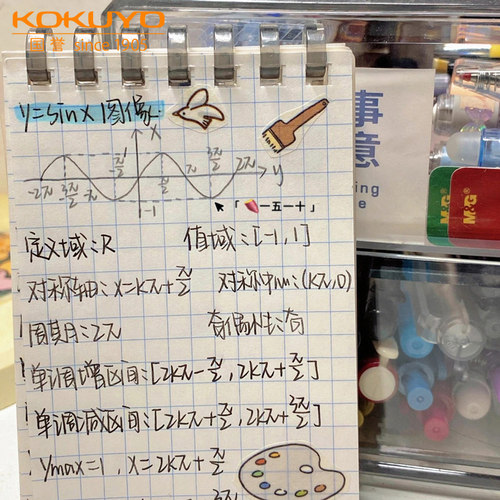 KOKUYO
国誉 since 1905
y=sinx 图像
x
-π/2 3π/2
-2π -3π/2 -π π/2 π 2π y
-1
「一五一十」
定义域:R 值域:[-1,1]
对称轴:x=kπ+π/2 对称中心:(kπ,0)
周期:2π 奇偶性:奇
单调增区间:[2kπ-π/2,2kπ+π/2]
单调减区间:[2kπ+π/2,2kπ+3π/2]
ymax=1,x=2kπ+π/2
事
意
M&G
M&G